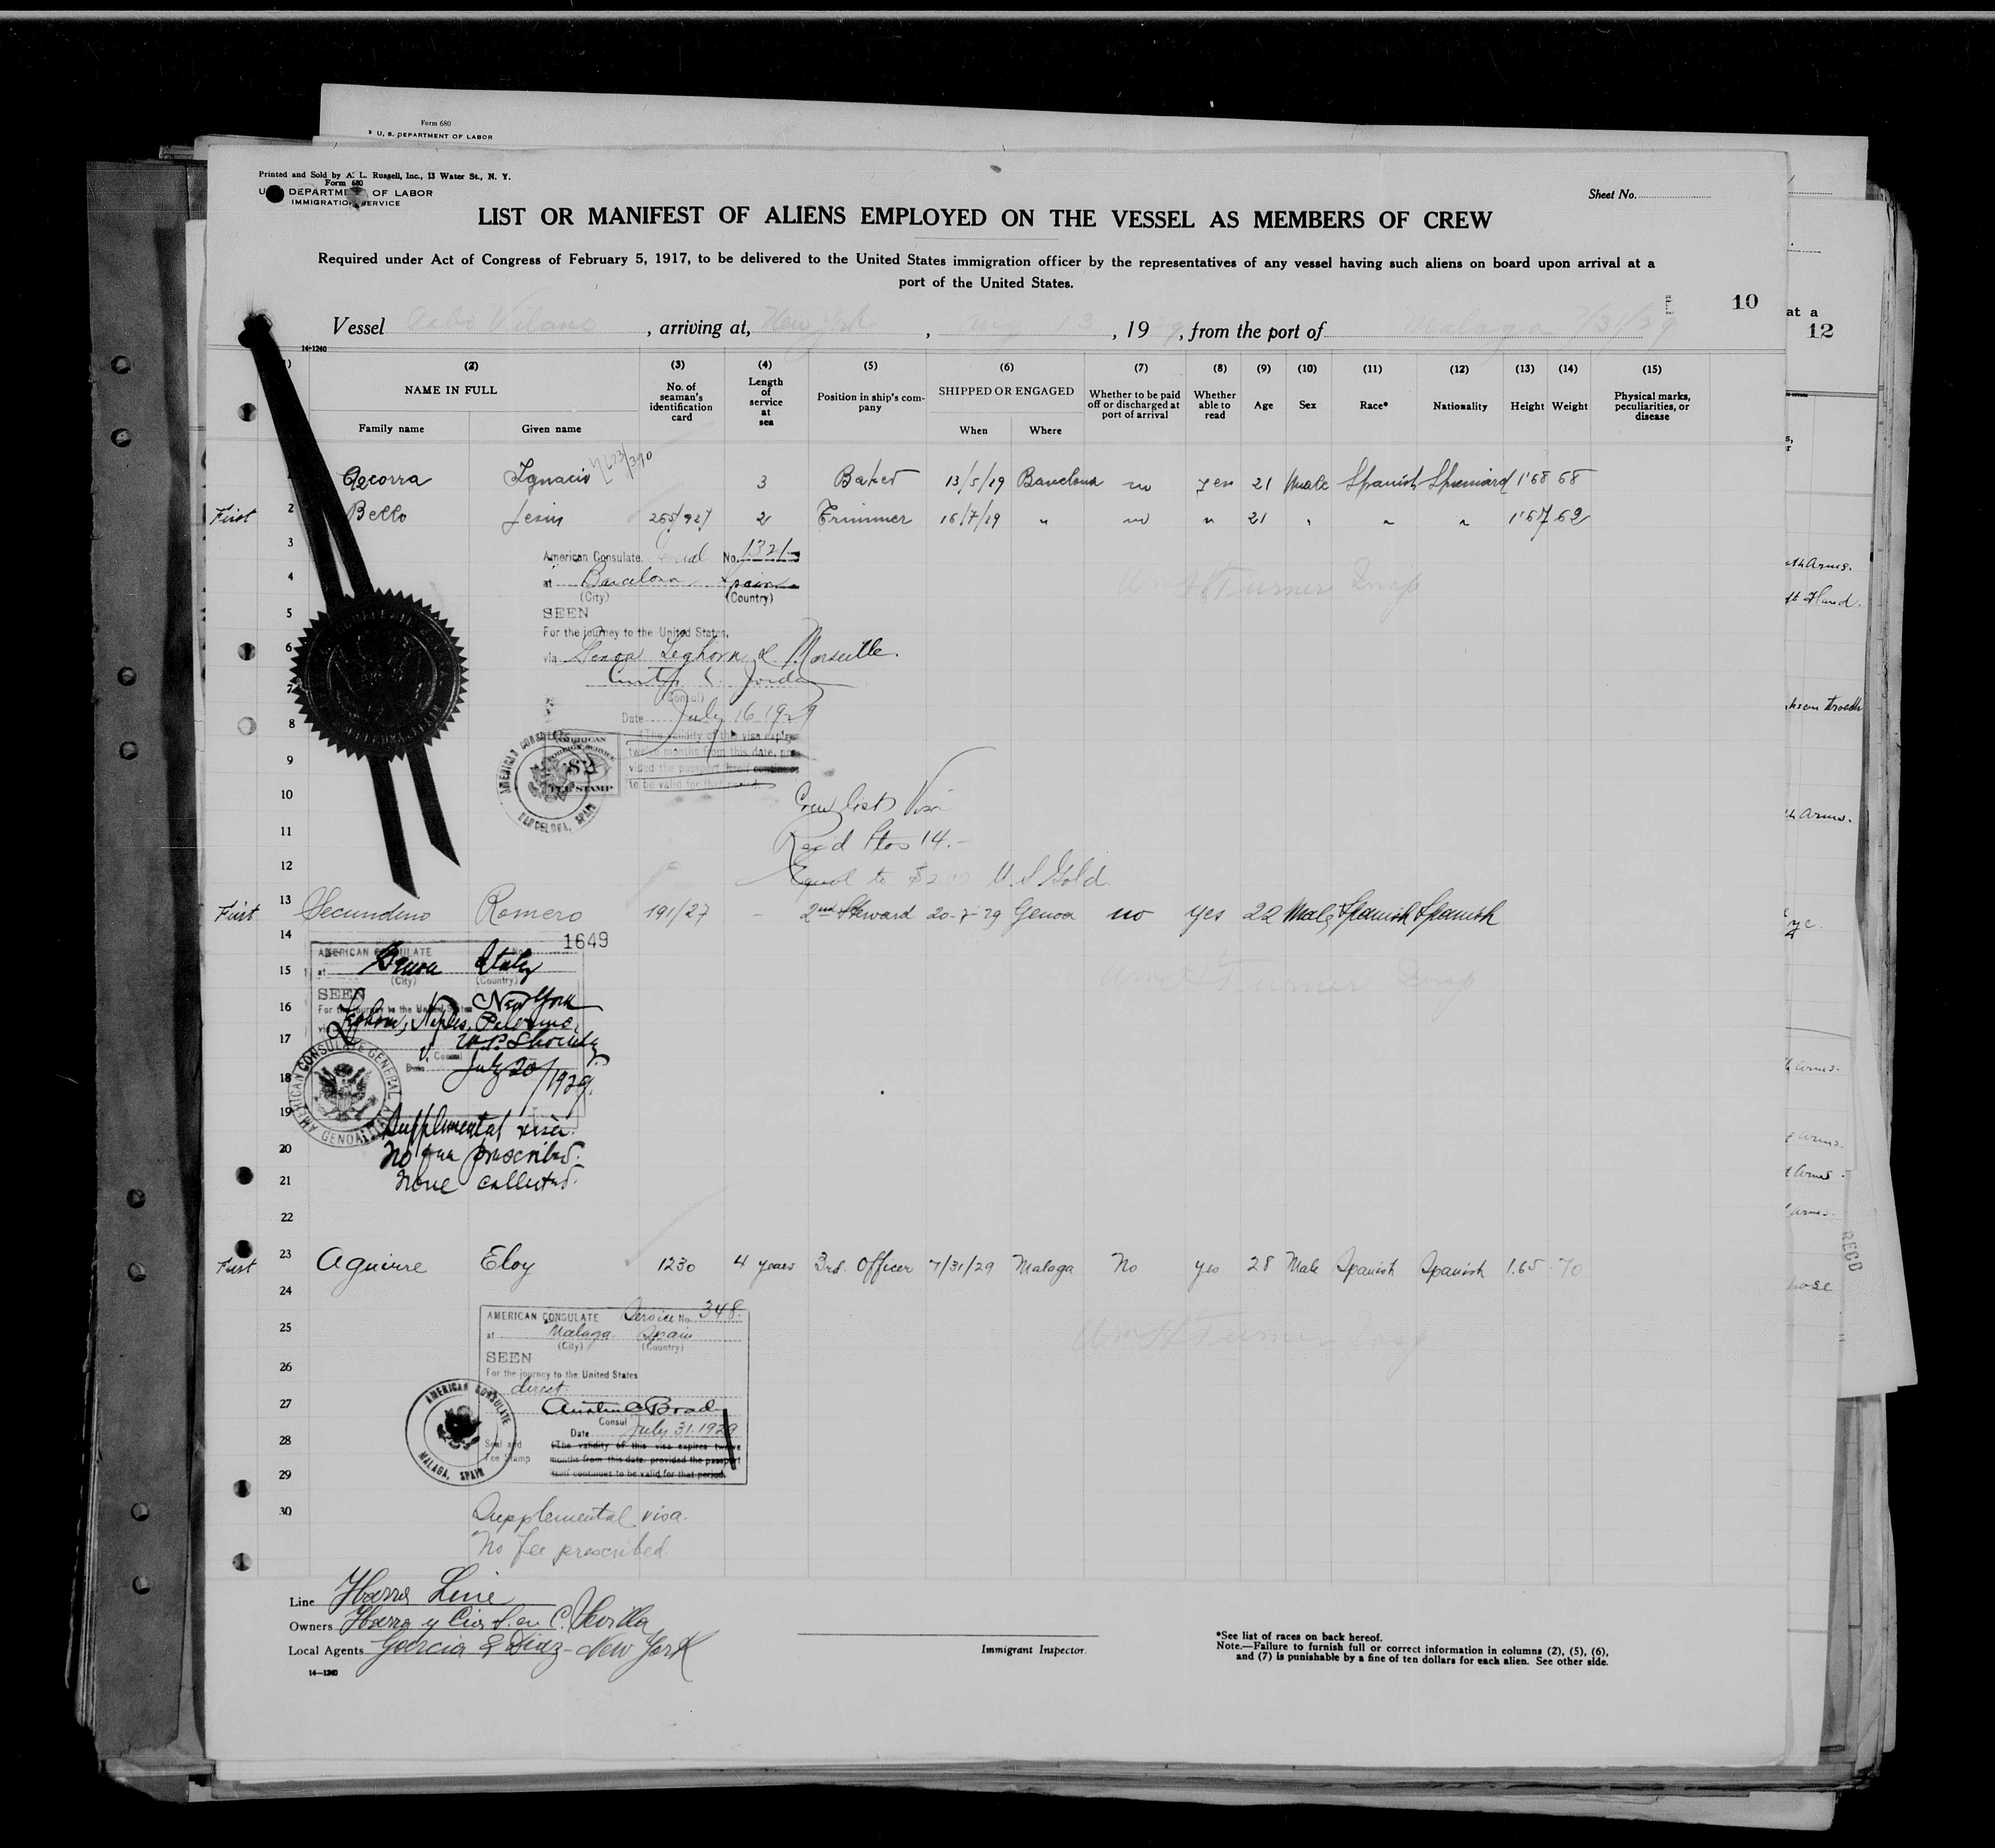 Form 680
U. S. DEPARTMENT OF LABOR
Printed and Sold by A. L. Russell, Inc., 13 Water St., N. Y.
Form 680
U. DEPARTMENT OF LABOR
IMMIGRATION SERVICE
Sheet No.
LIST OR MANIFEST OF ALIENS EMPLOYED ON THE VESSEL AS MEMBERS OF CREW
Required under Act of Congress of February 5, 1917, to be delivered to the United States immigration officer by the representatives of any vessel having such aliens on board upon arrival at a
port of the United States.
10
at a
12
Vessel Cabo Vilano, arriving at, New York, Aug 13, 1929, from the port of Malaga 7/31/29
14-1240
(2) (3) (4) (5) (6) (7) (8) (9) (10) (11) (12) (13) (14) (15)
NAME IN FULL
Family name Given name
No. of seaman's identification card
Length of service at sea
Position in ship's company
SHIPPED OR ENGAGED
When Where
Whether to be paid off or discharged at port of arrival
Whether able to read
Age Sex Race* Nationality Height Weight
Physical marks, peculiarities, or disease
Ignacio 3 Baker 13/5/29 Barcelona no yes 21 Male Spanish Spaniard 1'68 68
First 2 Bello Jesus 265/927 2 Trimmer 16/7/29 " no " 21 " " " 1'67 62
3
American Consulate General No. 1321
4
at Barcelona Spain
(City) (Country)
5
SEEN
For the journey to the United States,
6
via Genoa Leghorn & Marseille.
7
Jordan
(Consul)
8
Date July 16 1929
(The validity of this visa expires
twelve months from this date, pro-
9
vided the passport itself continues
to be valid for that period.
AMERICAN FOREIGN SERVICE $2 FEE STAMP
AMERICAN CONSULATE BARCELONA, SPAIN
10
Crew list Visa
11
Rec'd Ptas 14.-
12
Equal to $2.00 U.S Gold
First 13 Secundino Romero 191/27 - 2nd Steward 20-7-29 Genoa no yes 22 Male Spanish Spanish
14
AMERICAN CONSULATE No. 1649
15
at Genoa Italy
(City) (Country)
16
SEEN
For the journey to the United States New York
via Leghorn, Naples, Palermo,
17
V. Consul
18
Date July 20/1929.
AMERICAN CONSULATE GENERAL GENOA ITALY
19
Supplemental visa.
20
No fee prescribed.
21
None collected.
22
First 23 Aguirre Eloy 1230 4 years 3rd. Officer 7/31/29 Malaga No yes 28 Male Spanish Spanish 1.65 70
24
AMERICAN CONSULATE Service No. 348.
25
at Malaga Spain
(City) (Country)
Wm H Turner Insp
26
SEEN
For the journey to the United States
direct.
27
Austin C Brady
Consul
28
Date July 31.1929
Seal and Fee Stamp
(The validity of this visa expires twelve
months from this date, provided the passport
29
itself continues to be valid for that period.
AMERICAN CONSULATE MALAGA, SPAIN
30
Supplemental visa.
No fee prescribed.
Line Ybarra Line
Owners Ybarra y Cia S. en C. Sevilla
Local Agents Garcia & Diaz - New York
14-1240
Immigrant Inspector.
*See list of races on back hereof.
Note.—Failure to furnish full or correct information in columns (2), (5), (6),
and (7) is punishable by a fine of ten dollars for each alien. See other side.
REC'D